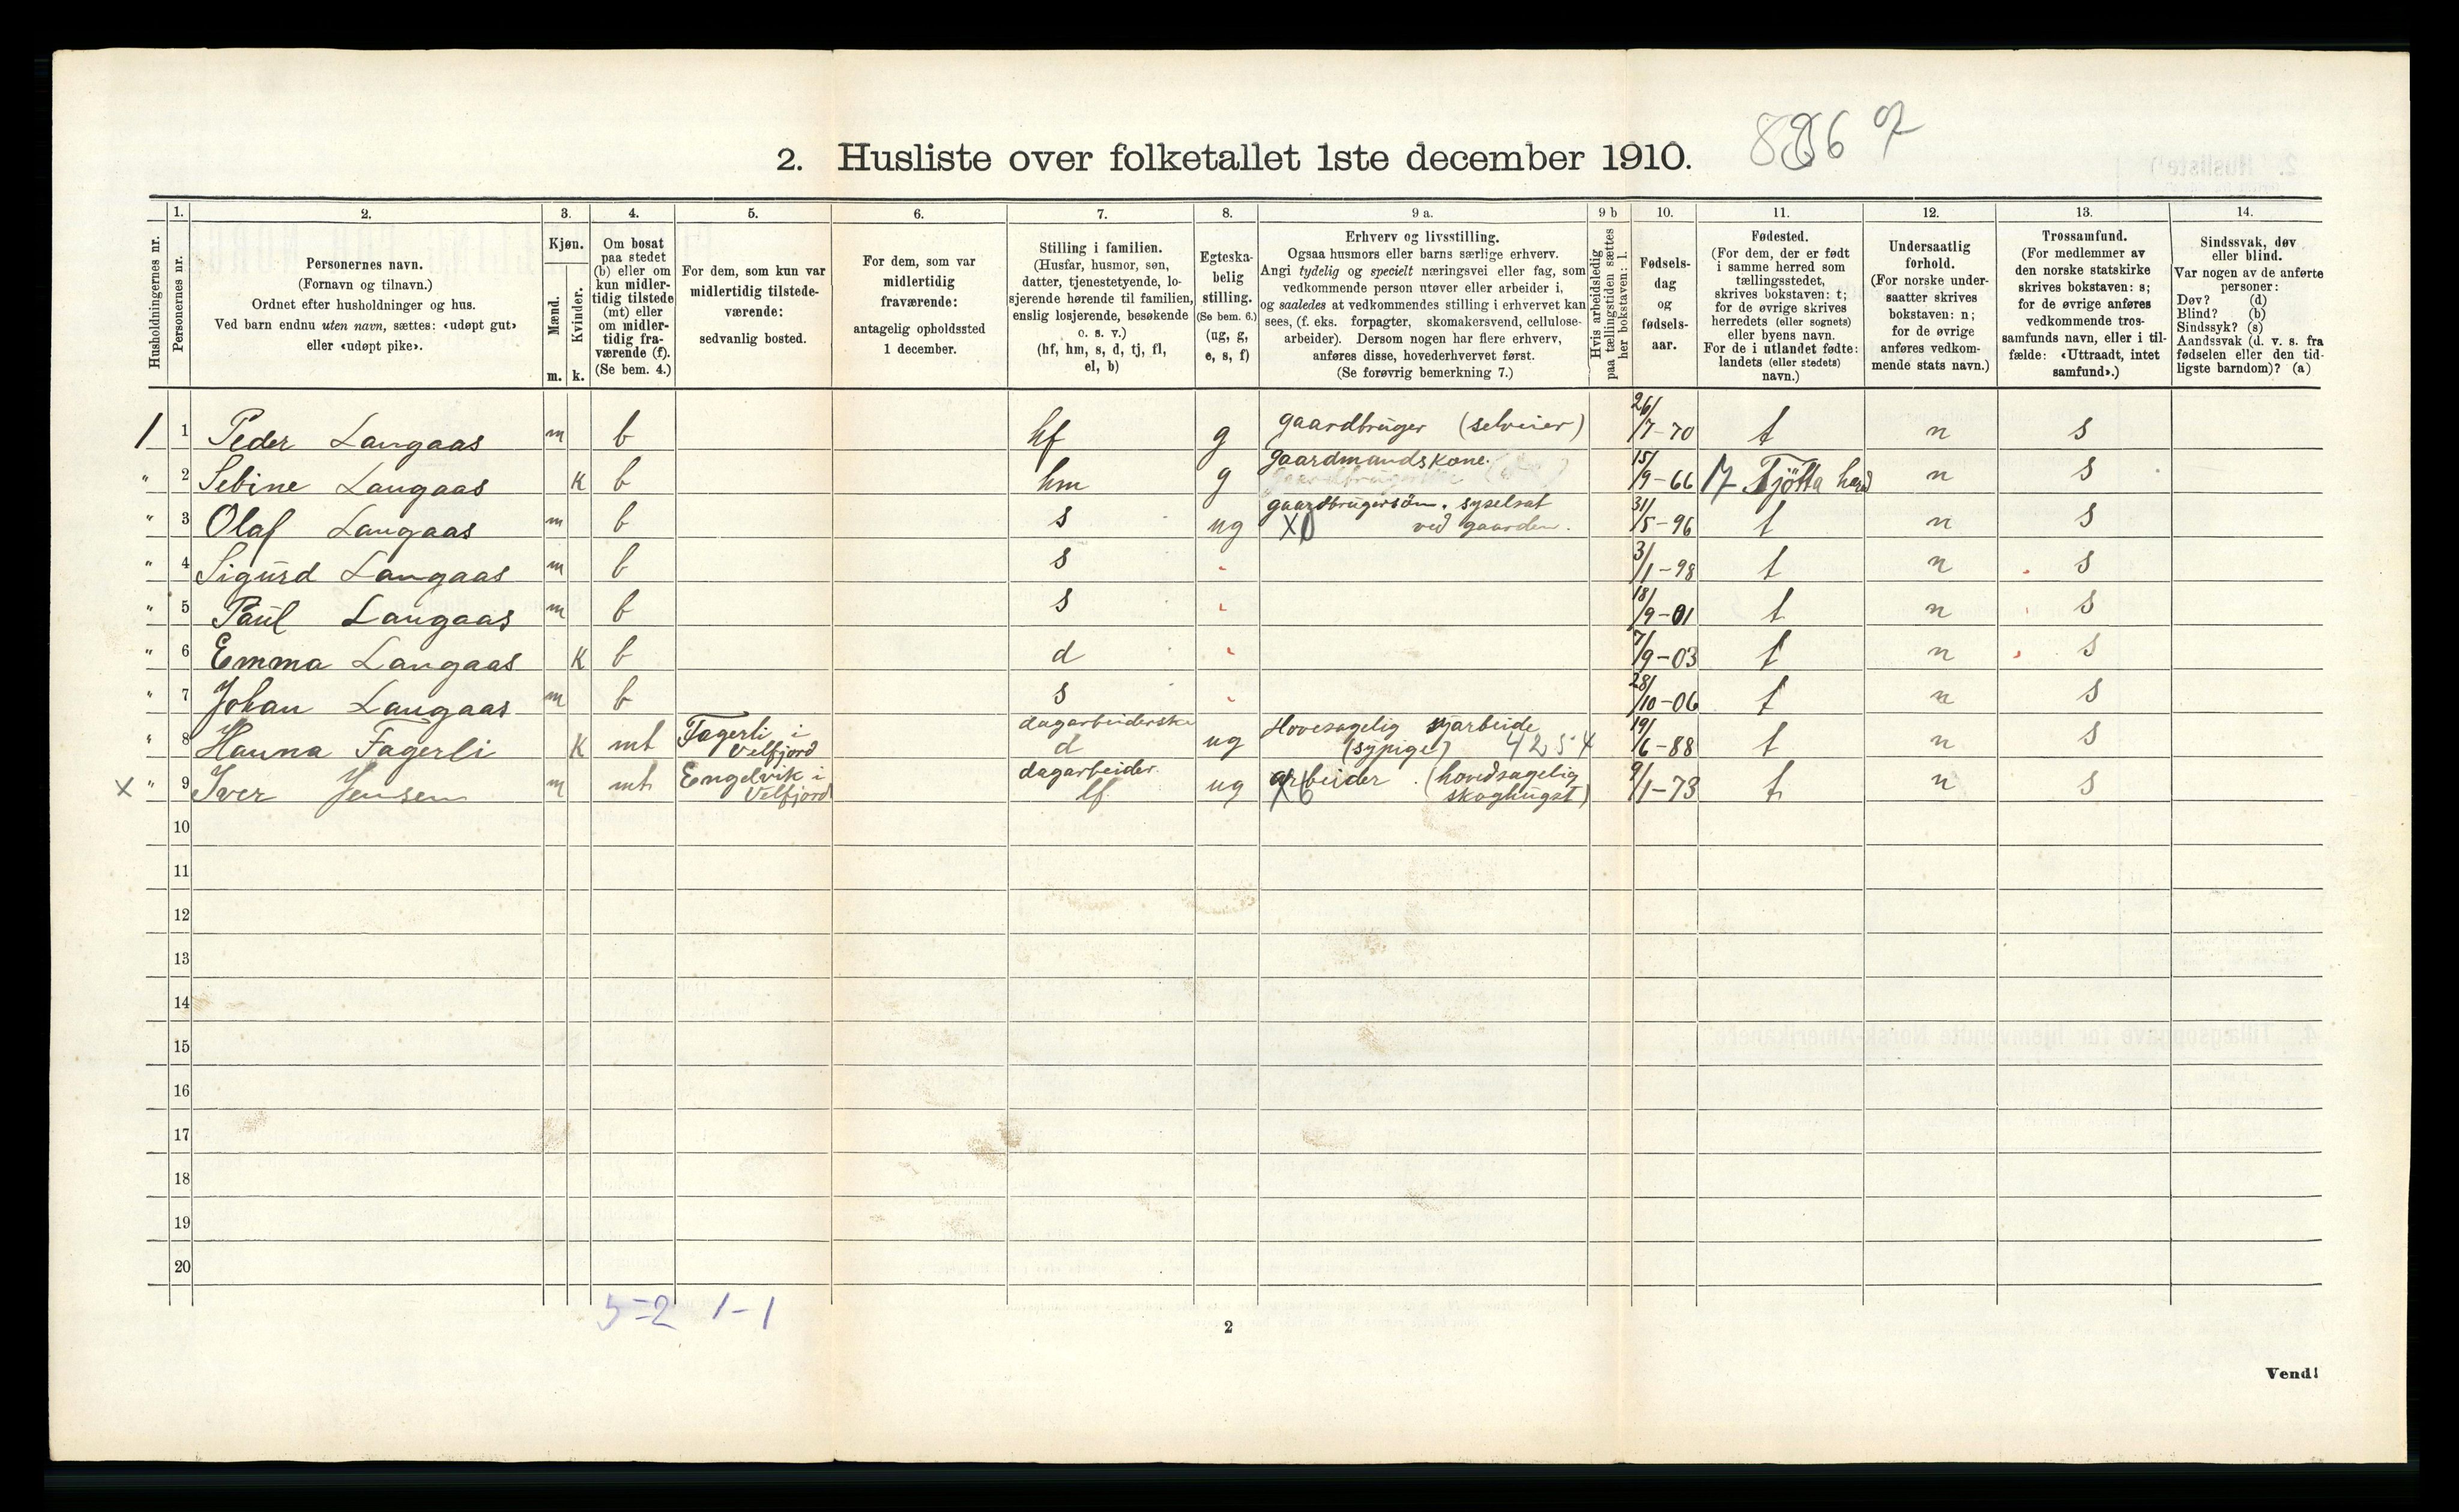 2. Husliste over folketallet 1ste december 1910.
Husholdningernes nr.
1.
Personernes nr.
2.
Personernes navn.
(Fornavn og tilnavn.)
Ordnet efter husholdninger og hus.
Ved barn endnu uten navn, sættes: «udøpt gut»
eller «udøpt pike».
3.
Kjøn.
Mænd.
Kvinder.
m. k.
4.
Om bosat
paa stedet
(b) eller om
kun midler-
tidig tilstede
(mt) eller
om midler-
tidig fra-
værende (f).
(Se bem. 4.)
5.
For dem, som kun var
midlertidig tilstede-
værende:
sedvanlig bosted.
6.
For dem, som var
midlertidig
fraværende:
antagelig opholdssted
1 december.
7.
Stilling i familien.
(Husfar, husmor, søn,
datter, tjenestetyende, lo-
sjerende hørende til familien,
enslig losjerende, besøkende
o. s. v.)
(hf, hm, s, d, tj, fl,
el, b)
8.
Egteska-
belig
stilling.
(Se bem. 6.)
(ug, g,
e, s, f)
9 a.
Erhverv og livsstilling.
Ogsaa husmors eller barns særlige erhverv.
Angi tydelig og specielt næringsvei eller fag, som
vedkommende person utøver eller arbeider i,
og saaledes at vedkommendes stilling i erhvervet kan
sees, (f. eks. forpagter, skomakersvend, cellulose-
arbeider). Dersom nogen har flere erhverv,
anføres disse, hovederhvervet først.
(Se forøvrig bemerkning 7.)
9 b
Hvis arbeidsledig
paa tællingstiden sættes
her bokstaven: l.
10.
Fødsels-
dag
og
fødsels-
aar.
11.
Fødested.
(For dem, der er født
i samme herred som
tællingsstedet,
skrives bokstaven: t;
for de øvrige skrives
herredets (eller sognets)
eller byens navn.
For de i utlandet fødte:
landets (eller stedets)
navn.)
12.
Undersaatlig
forhold.
(For norske under-
saatter skrives
bokstaven: n;
for de øvrige
anføres vedkom-
mende stats navn.)
13.
Trossamfund.
(For medlemmer av
den norske statskirke
skrives bokstaven: s;
for de øvrige anføres
vedkommende tros-
samfunds navn, eller i til-
fælde: «Uttraadt, intet
samfund».)
14.
Sindssvak, døv
eller blind.
Var nogen av de anførte
personer:
Døv? (d)
Blind? (b)
Sindssyk? (s)
Aandssvak (d. v. s. fra
fødselen eller den tid-
ligste barndom)? (a)
1 1 Peder Langaas m b hf g gaardbruger (selveier) 26/7-70 t n s
" 2 Sebine Langaas k b hm g gaardmandskone. 15/9-66 Tjötta herd n s
" 3 Olaf Langaas m b s ug gaardbrugersön. syselsat ved gaarden. 31/5-96 t n s
" 4 Sigurd Langaas m b s 3/1-98 t n s
" 5 Paul Langaas m b s 18/9-01 t n s
" 6 Emma Langaas k b d 7/9-03 t n s
" 7 Johan Langaas m b s 28/10-06 t n s
" 8 Hanna Fagerli k mt Fagerli i Velfjord dagarbeiderske d ug Hovesagelig syarbeide (sypige) 4254 19/6-88 t n s
X " 9 Iver Jensen m mt Engelvik i Velfjord dagarbeider. lf ug arbeider (hovdsagelig skoghugst) 9/1-73 t n s
10
11
12
13
14
15
16
17
18
19
20
5-2 1-1
2
Vend!